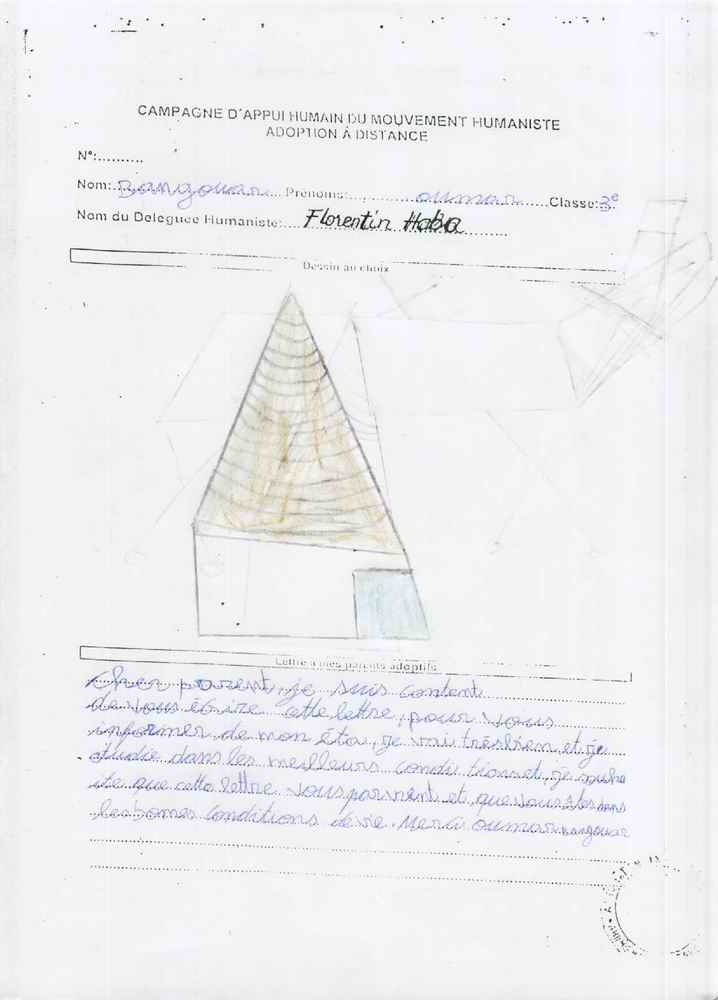 CAMPAGNE D'APPUI HUMAIN DU MOUVEMENT HUMANISTE
ADOPTION À DISTANCE
N°:..........
Nom: Bangouar Prénoms: oumar Classe: 3e
Nom du Deleguee Humaniste: Florentin Haba
Dessin au choix
Lettre à mes parents adoptifs
cher parent, je suis content
de vous écrire cette lettre, pour vous
informer de mon éta, je vai trèsbien et je
étudie dans les meilleurs conditions et, je souha
ite que cette lettre vous parvient et que vous êtes dans
les bomes conditions de vie. Merci oumar bangouar